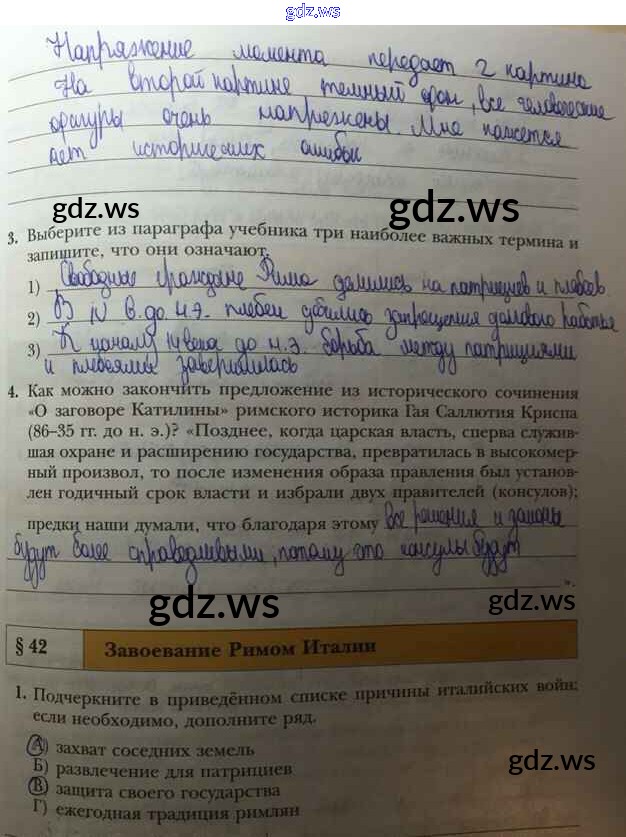 gdz.ws
Напряжение момента передает 2 картина
На второй картине темный фон, все человеческие
фигуры очень напряжены. Мне кажется
нет исторических ошибки
gdz.ws
gdz.ws
3. Выберите из параграфа учебника три наиболее важных термина и
запишите, что они означают.
1) Свободные граждане Рима делились на патрициев и плебеев
2) В IV в. до н.э. плебеи добились запрещения долгового рабства
3) К началу века до н.э. борьба между патрициями
и плебеями завершилась
4. Как можно закончить предложение из исторического сочинения
«О заговоре Катилины» римского историка Гая Саллютия Криспа
(86–35 гг. до н. э.)? «Позднее, когда царская власть, сперва служив-
шая охране и расширению государства, превратилась в высокомер-
ный произвол, то после изменения образа правления был установ-
лен годичный срок власти и избрали двух правителей (консулов);
предки наши думали, что благодаря этому все решения и законы
будут более справедливыми, потому что консулы будут
».
gdz.ws
gdz.ws
§ 42 Завоевание Римом Италии
1. Подчеркните в приведённом списке причины италийских войн;
если необходимо, дополните ряд.
А) захват соседних земель
Б) развлечение для патрициев
В) защита своего государства
Г) ежегодная традиция римлян
gdz.ws
gdz.ws